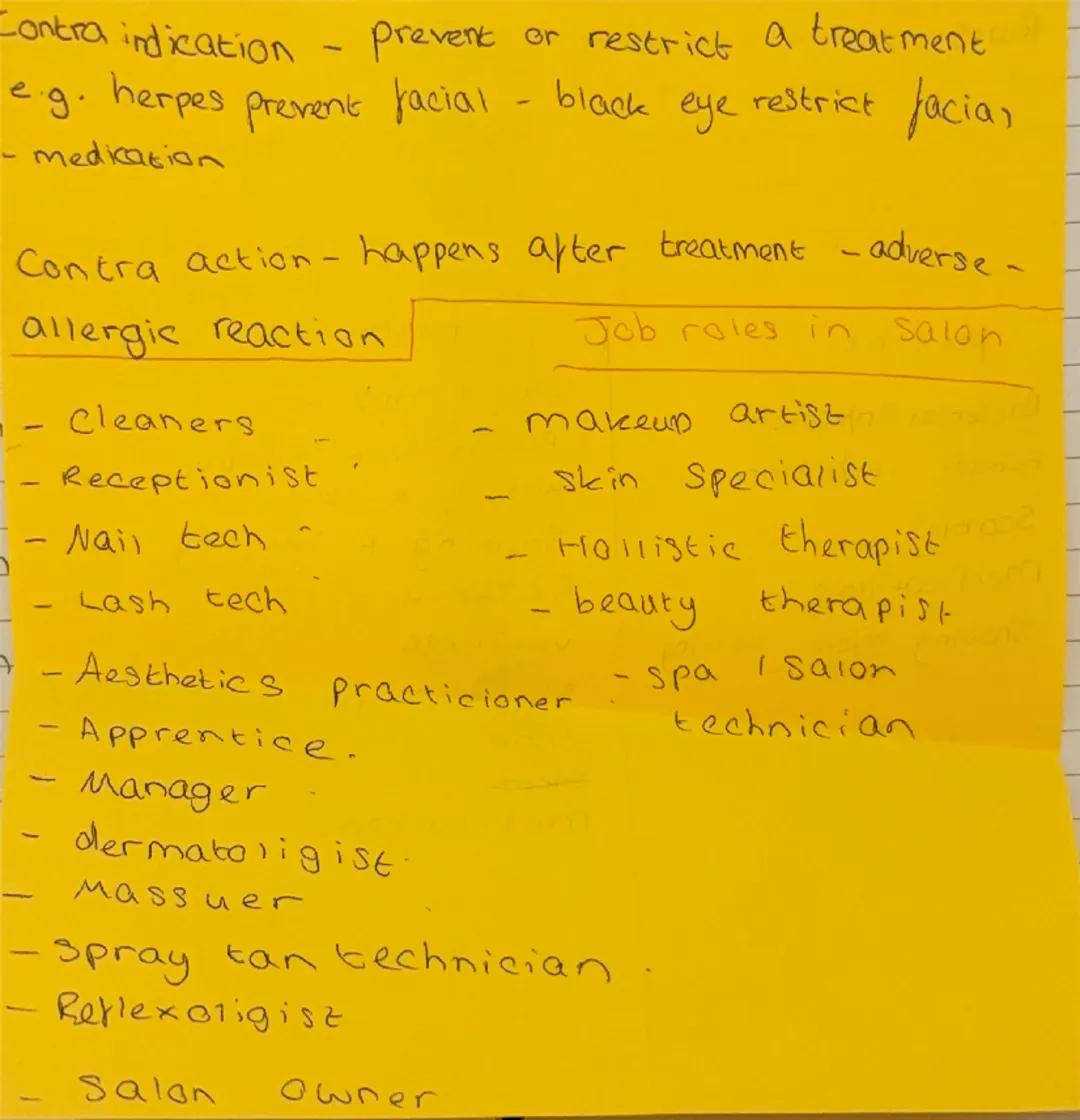 Contra indication - prevent or restrict a treatment
e.g. herpes prevent facial - black eye restrict facial
- medication
Contra action - happens after treatment - adverse -
allergic reaction
Job roles in salon
- Cleaners
- Receptionist
- Nail tech
- Lash tech
- Aesthetics practicioner
- Apprentice.
- Manager
- dermatoligist.
- Massuer
- Spray tan technician.
- Reflexoligist
- Salon owner
- makeup artist
- skin specialist
- Hollistic therapist
- beauty therapist
- spa / salon
technician